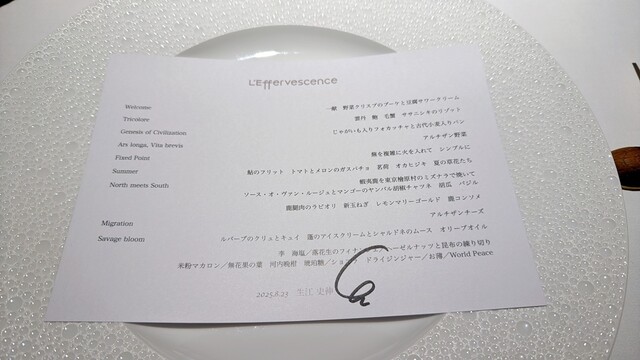 L'Effervescence
Welcome 一献 野菜クリスプのブーケと豆腐サワークリーム
Tricolore 雲丹 鮑 毛蟹 ササニシキのリゾット
Genesis of Civilization じゃがいも入りフォカッチャと古代小麦入りパン
Ars longa, Vita brevis アルチザン野菜
Fixed Point 蕪を複雑に火を入れて シンプルに
Summer 鮎のフリット トマトとメロンのガスパチョ 茗荷 オカヒジキ 夏の草花たち
North meets South 蝦夷鹿を東京檜原村のミズナラで焼いて
ソース・オ・ヴァン・ルージュとマンゴーのヤンバル胡椒チャツネ 胡瓜 バジル
鹿腿肉のラビオリ 新玉ねぎ レモンマリーゴールド 鹿コンソメ
Migration アルチザンチーズ
Savage bloom ルバーブのクリュとキュイ 蓬のアイスクリームとシャルドネのムース オリーブオイル
李 海塩／落花生のフィナンシェ ヘーゼルナッツと昆布の練り切り
米粉マカロン／無花果の葉 河内晩柑 琥珀糖／ショ ドライジンジャー／お薄／World Peace
2025.8.23 生江 史伸